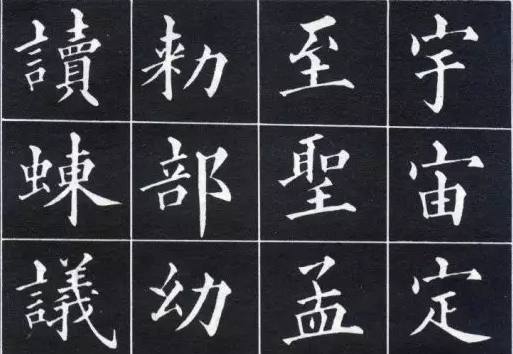 宇宙定
至聖孟
勑部幼
讀蝀議